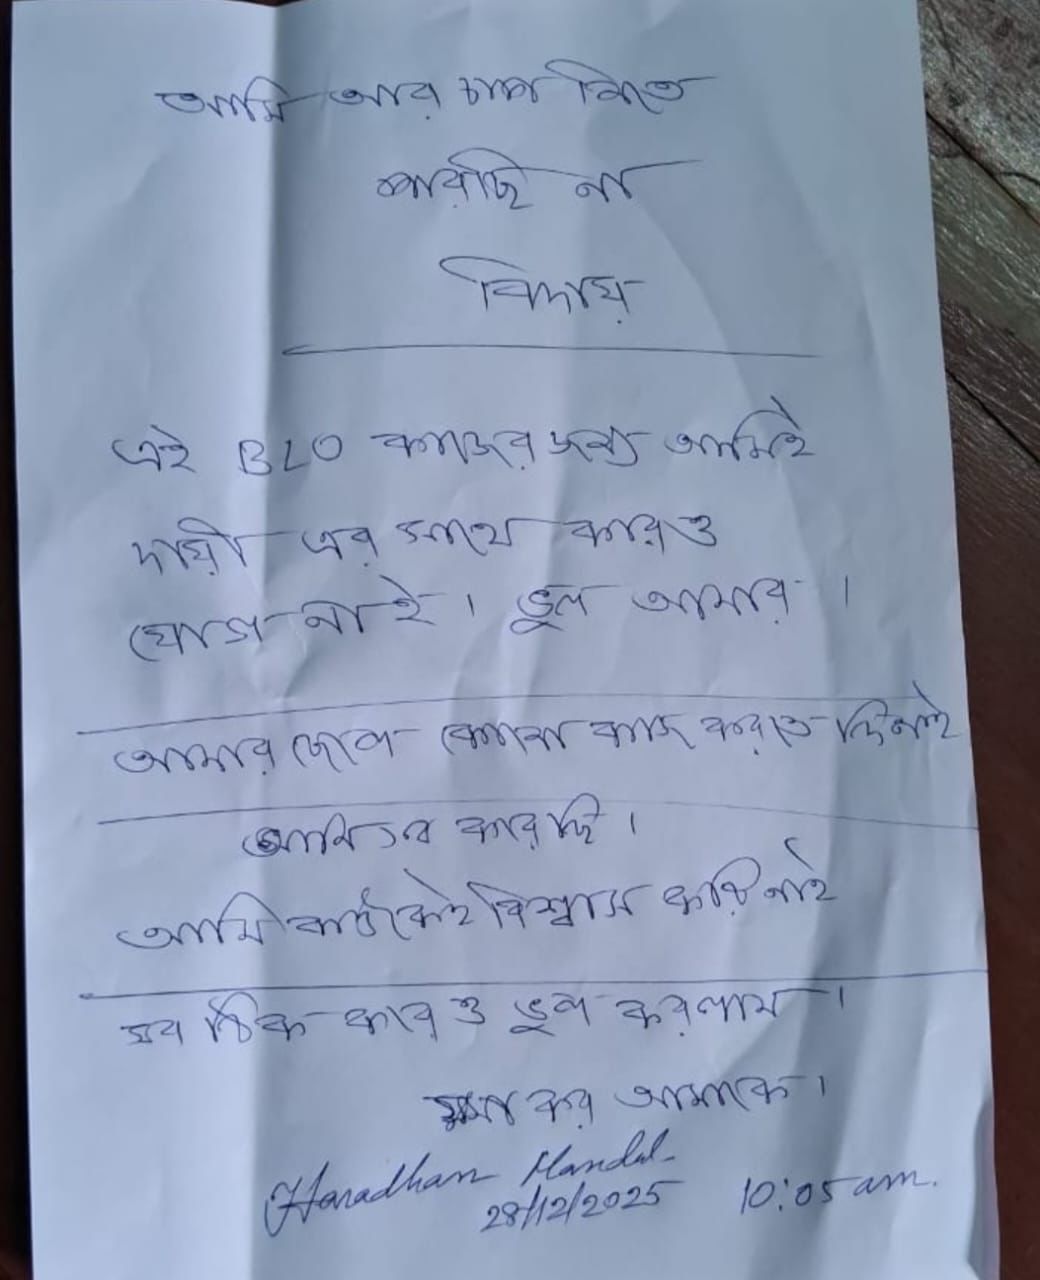 আমি আর চাপ নিতে
পারছি না
বিদায়
এই BLO কাজের জন্য আমিই
দায়ী এর সাথে কারও
যোগ নাই। ভুল আমার।
আমার ছেলে কোনো কাজ করতে দিনাই
আমি সব করেছি।
আমি কাউকেই বিশ্বাস করিনাই
সব ঠিক করেও ভুল করলাম।
ক্ষমা কর আমাকে।
Haradhan Mandal
28/12/2025 10:05 am.